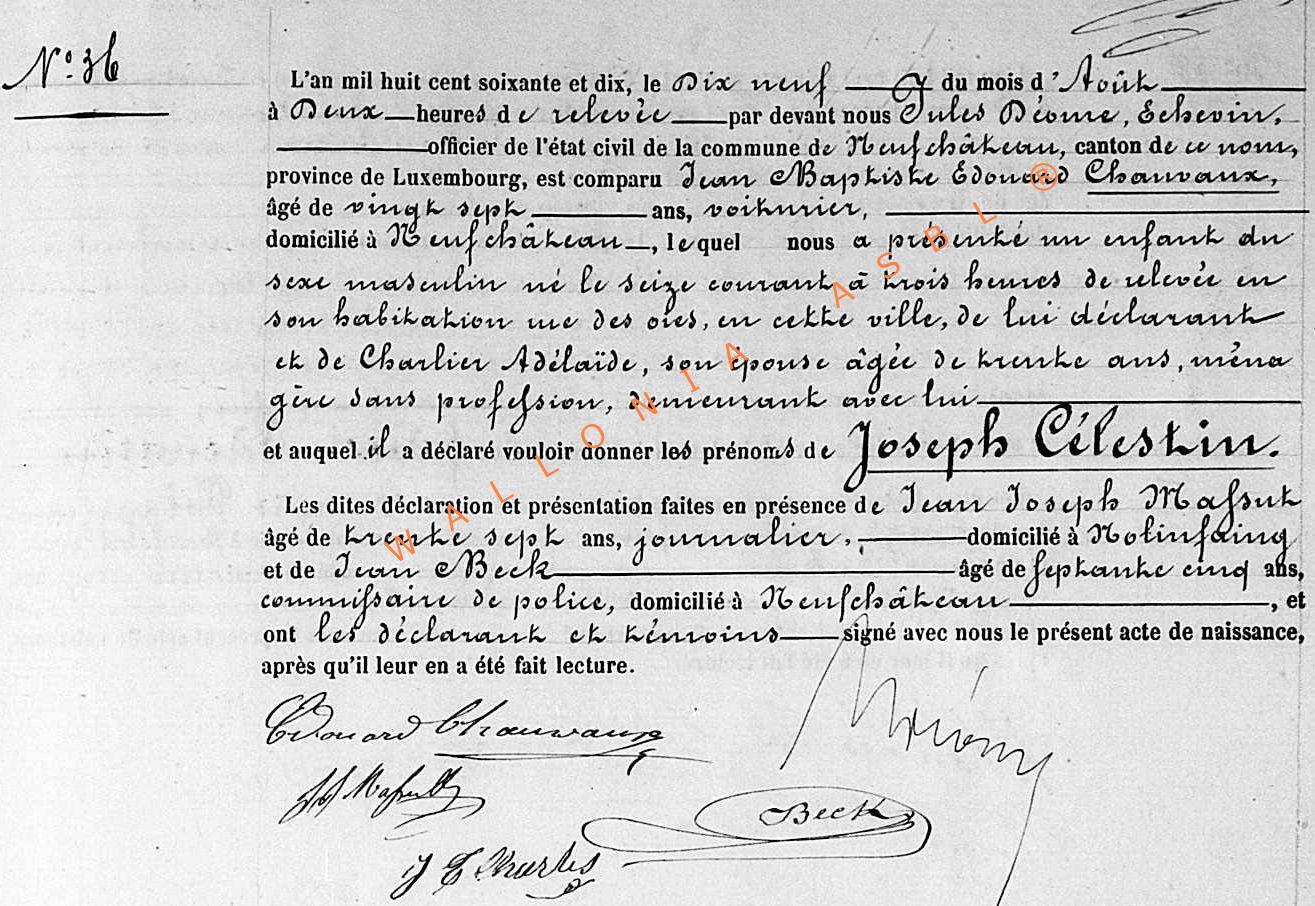 N° 36
L'an mil huit cent soixante et dix, le Dix neuf du mois d'Août
à Deux heures de relevée par devant nous Jules Déome, Echevin,
officier de l'état civil de la commune de Neufchâteau, canton de ce nom,
province de Luxembourg, est comparu Jean Baptiste Edouard Chauvaux,
âgé de vingt sept ans, voiturier,
domicilié à Neufchâteau, lequel nous a présenté un enfant du
sexe masculin né le seize courant à trois heures de relevée en
son habitation rue des oies, en cette ville, de lui déclarant
et de Charlier Adélaïde, son épouse âgée de trente ans, ména
gère sans profession, demeurant avec lui
et auquel il a déclaré vouloir donner les prénoms de Joseph Célestin.
Les dites déclaration et présentation faites en présence de Jean Joseph Massut
âgé de trente sept ans, journalier, domicilié à Molinfaing
et de Jean Beck âgé de septante cinq ans,
commissaire de police, domicilié à Neufchâteau, et
ont les déclarant et témoins signé avec nous le présent acte de naissance,
après qu'il leur en a été fait lecture.
Edouard Chauvaux
Beck
WALLONIA ASBL ®